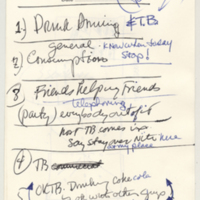 1.) Drunk Driving & TB
general - Know when to say
2) Consumptions Stop!
3 Friends Helping Friends
Telephoning
(party) everybody out of it
Not TB comes in
Say stay over Nite here
4 TB
OKTB - Drinking coke cola
with other guys